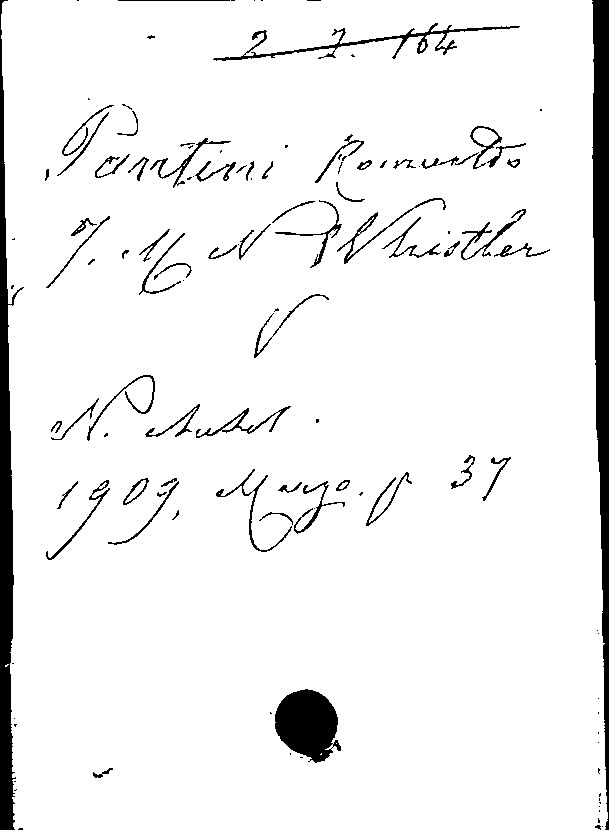 2. 7. 164
Pantini Romualdo
J. M N Whistler
V
N. Antol.
1909, Marzo. p 37